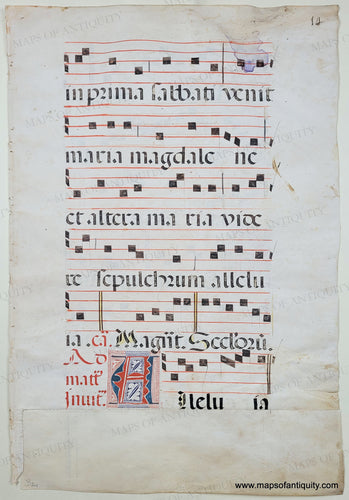 in prima sabbati venit
maria magdale ne
et altera ma ria vide
re sepulchrum allelu
ia. ca. Magnt. Seclorum.
Ad
mat
Invit.
Allelu ia
www.mapsofantiquity.com